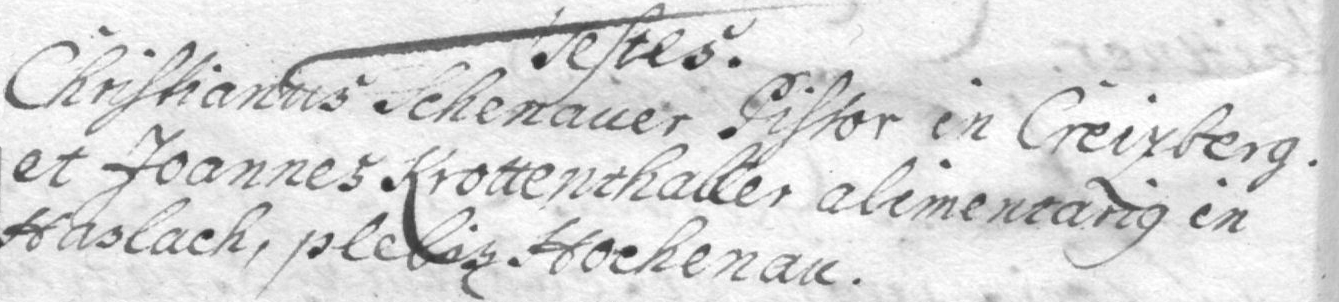 Testes.
Christianus Schenauer Pistor in Creizberg.
et Joannes Krottenthaller alimentariꝰ in
Haslach, plebis Hochenau.